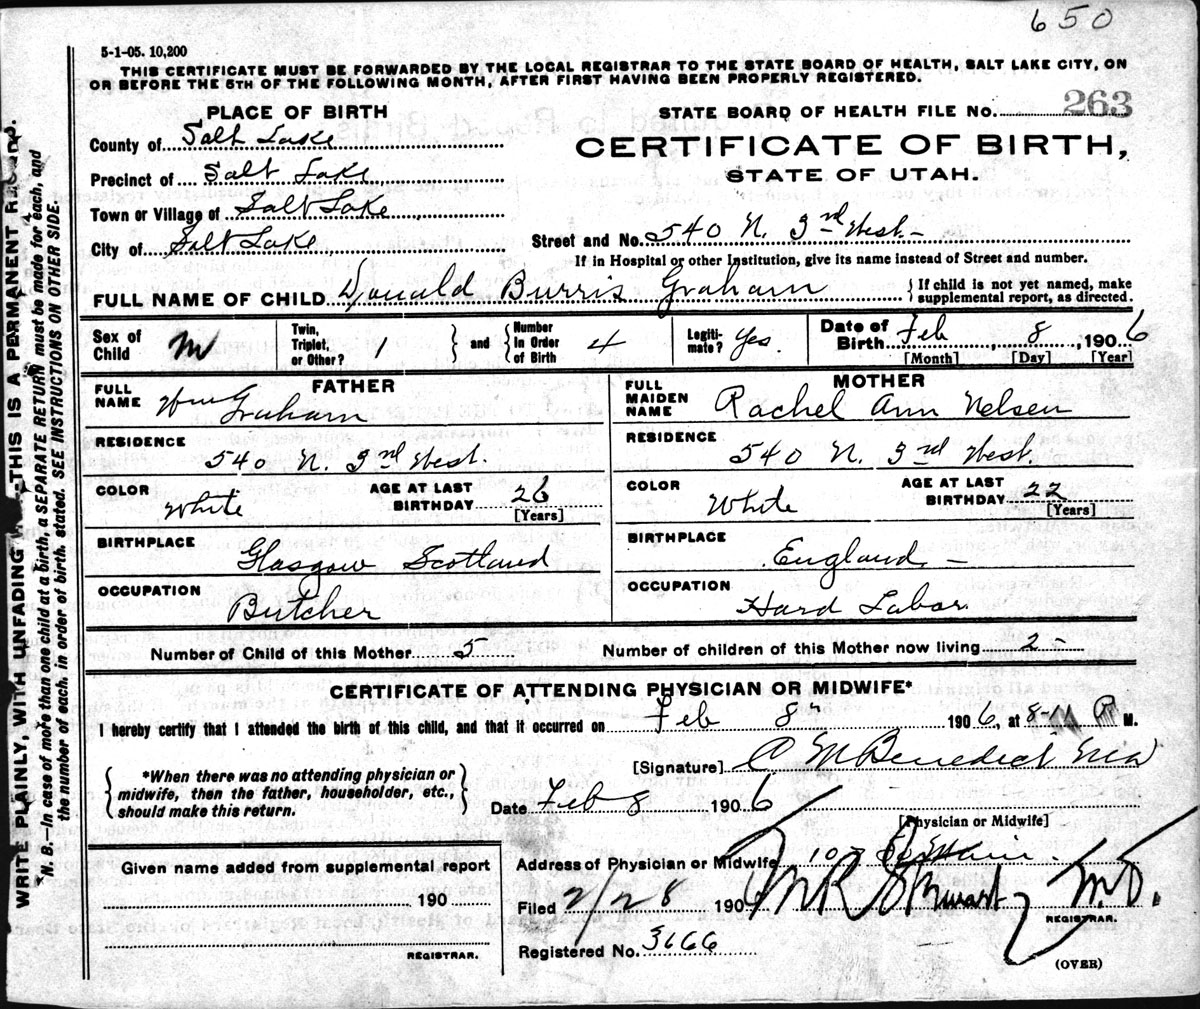 650
5-1-05. 10,200
THIS CERTIFICATE MUST BE FORWARDED BY THE LOCAL REGISTRAR TO THE STATE BOARD OF HEALTH, SALT LAKE CITY, ON
OR BEFORE THE 5TH OF THE FOLLOWING MONTH, AFTER FIRST HAVING BEEN PROPERLY REGISTERED.
PLACE OF BIRTH
County of Salt Lake
Precinct of Salt Lake
Town or Village of Salt Lake
City of Salt Lake
STATE BOARD OF HEALTH FILE NO. 263
CERTIFICATE OF BIRTH,
STATE OF UTAH.
Street and No. 540 N. 3rd West.
If in Hospital or other Institution, give its name instead of Street and number.
FULL NAME OF CHILD Donald Burris Graham { If child is not yet named, make
supplemental report, as directed.
Sex of Child M
Twin, Triplet, or Other? 1 } and { Number In Order of Birth 4
Legiti-mate? Yes.
Date of Birth Feb, 8, 1906
[Month] [Day] [Year]
FATHER
FULL NAME Wm Graham
RESIDENCE
540 N. 3rd West.
COLOR White
AGE AT LAST BIRTHDAY 26
[Years]
BIRTHPLACE
Glasgow Scotland
OCCUPATION
Butcher
MOTHER
FULL MAIDEN NAME Rachel Ann Nelsen
RESIDENCE
540 N. 3rd West.
COLOR White
AGE AT LAST BIRTHDAY 22
[Years]
BIRTHPLACE
England
OCCUPATION
Hard Labor.
Number of Child of this Mother 5
Number of children of this Mother now living 2
CERTIFICATE OF ATTENDING PHYSICIAN OR MIDWIFE*
I hereby certify that I attended the birth of this child, and that it occurred on Feb 8" 1906, at 8- P M.
{ *When there was no attending physician or
midwife, then the father, householder, etc.,
should make this return. }
[Signature] C M Benedict MD
Date Feb 8 1906
[Physician or Midwife]
Address of Physician or Midwife Main.
Given name added from supplemental report
190
REGISTRAR.
Filed 2/28 1906 M R Stewart M.D.
REGISTRAR.
Registered No. 3666
(OVER)
WRITE PLAINLY, WITH UNFADING THIS IS A PERMANENT RECORD.
*N. B.—In case of more than one child at a birth, a SEPARATE RETURN must be made for each, and
the number of each, in order of birth, stated. SEE INSTRUCTIONS ON OTHER SIDE.